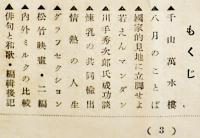 もくじ
▲千山萬水樓
▲八月のことば
▲國家的見地に立脚せよ
▲若えんマンダン
▲川手秀次郎氏成功談
▲煉乳の共同輸出
▲情熱の人生
▲グラフセクション
▲松竹映畫・二編
▲内外ミルクの比較
▲俳句と和歌・編輯後記
(3)